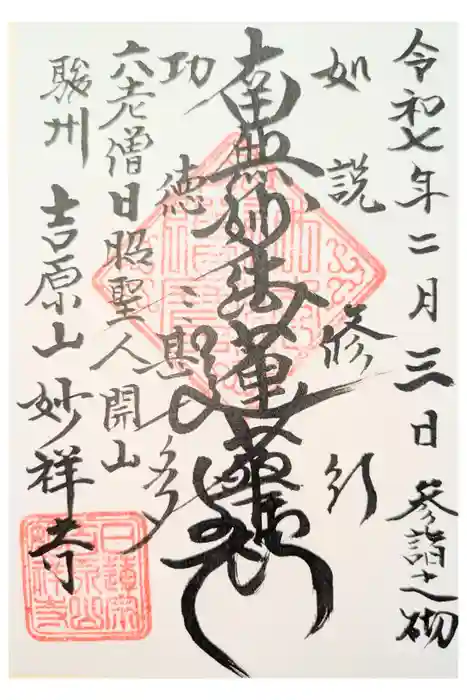 令和七年二月三日 参詣之砌
如説修行
南無妙法蓮華経
功徳甚多
六老僧日昭聖人開山
駿州 吉原山 妙祥寺